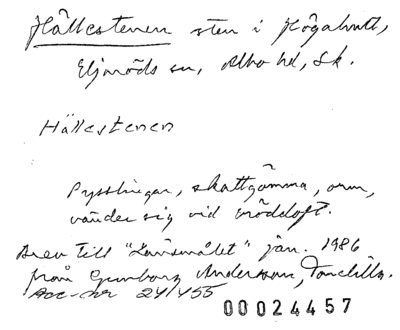 Hållestenen sten i Högahult,
Eljaröds sn, Albo hd, Sk.
Hällestenen
Pysslingar, skattgömma, orm,
vänder sig vid bröddoft.
Brev till "Lantmålet" jan. 1986
från Gunborg Andersson, Tomelilla.
Acc-nr 24455
00024457